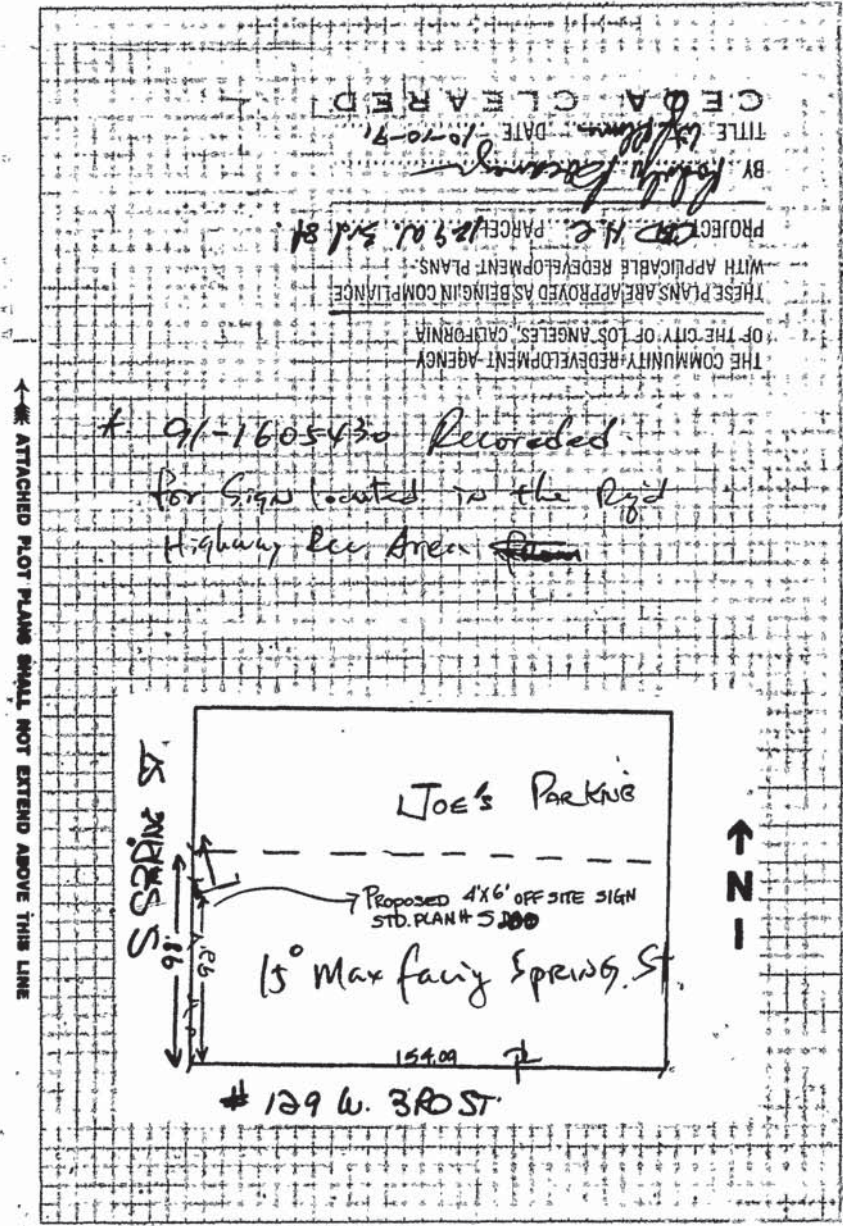 THE COMMUNITY REDEVELOPMENT AGENCY
OF THE CITY OF LOS ANGELES, CALIFORNIA
THESE PLANS ARE APPROVED AS BEING IN COMPLIANCE
WITH APPLICABLE REDEVELOPMENT PLANS.
PROJECT CBD PARCEL 129 W. 3rd St
BY
TITLE DATE 10-10-91
CEQA CLEARED
* 91-1605430 Recoreded
for Sign located in the Rq'd
Highway Area
ATTACHED PLOT PLANS SHALL NOT EXTEND ABOVE THIS LINE
JOE'S PARKING
S SPRING ST.
PROPOSED 4'X6' OFF SITE SIGN
STD. PLAN # 5
98'
15° Max facing SPRING. St.
154.09 PL
# 129 W. 3RD ST.
N